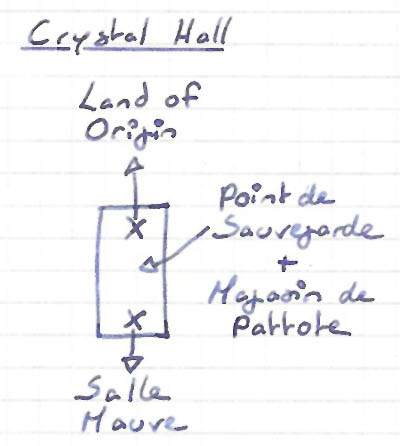 Crystal Hall
Land of
Origin
X
Point de
Sauvegarde
+
Magasin de
Pattote
X
Salle
Mauve